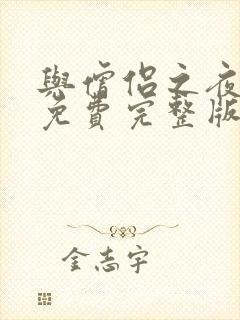 與僧侶之夜
免費完整版
金志宇